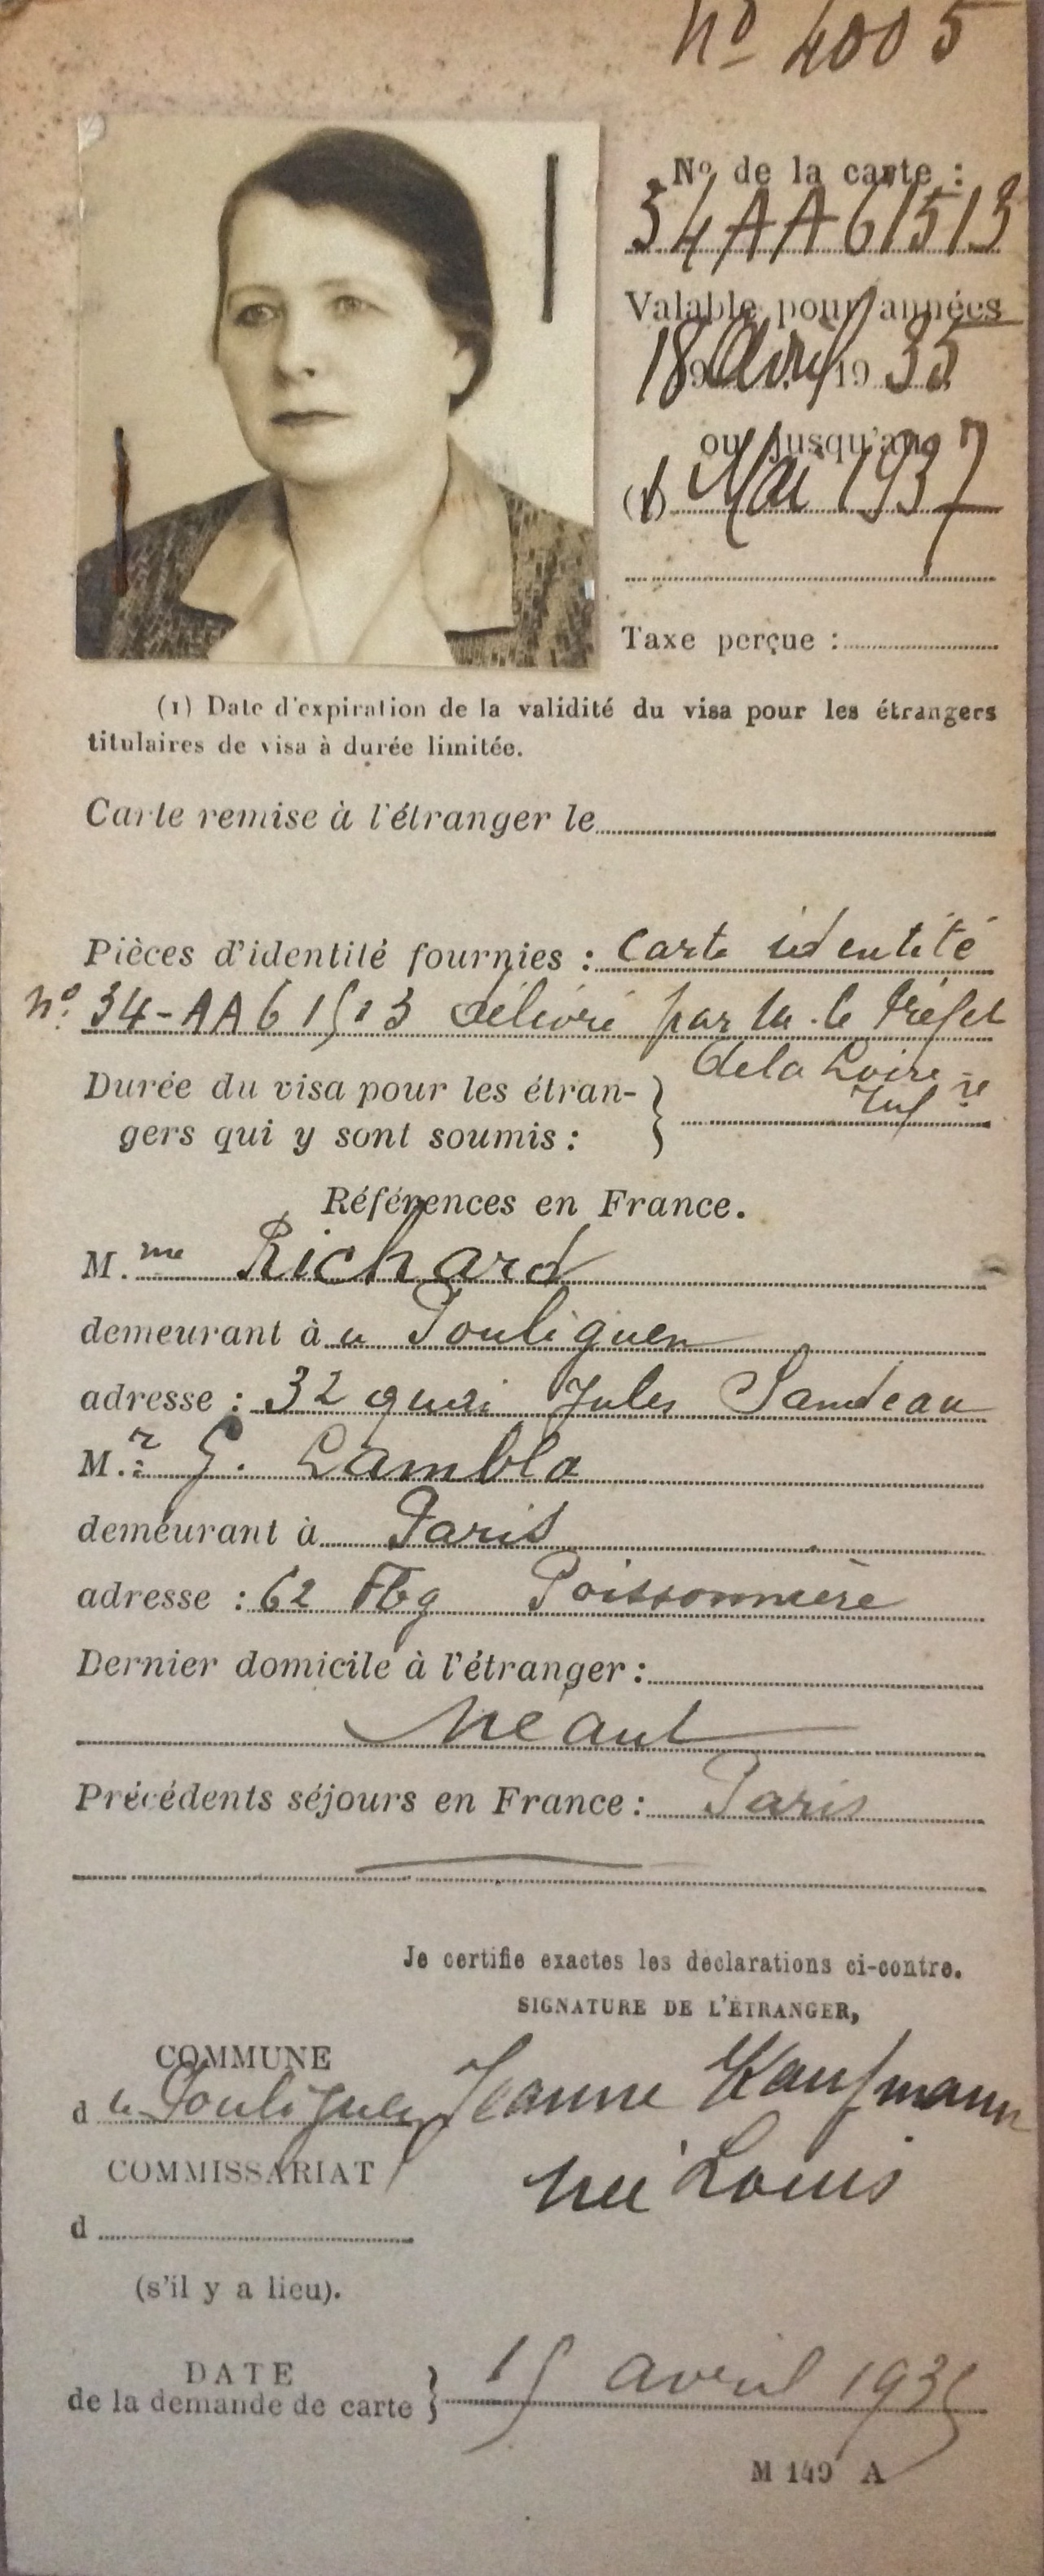 No 4005
No de la carte :
34AA61513
Valable pour années
18 Avril 1935
ou jusqu'au
(1) Mai 1937
Taxe perçue :
(1) Date d'expiration de la validité du visa pour les étrangers
titulaires de visa à durée limitée.
Carte remise à l'étranger le
Pièces d'identité fournies : Carte identité
no. 34-AA61513 délivré par M. le Préfet
de la Loire Infre
Durée du visa pour les étran-
gers qui y sont soumis :
Références en France.
M.me Richard
demeurant à u Pouliguen
adresse : 32 quai Jules Sandeau
M.r G. Lambla
demeurant à Paris
adresse : 62 Fbg Poissonnière
Dernier domicile à l'étranger :
Néant
Précédents séjours en France : Paris
Je certifie exactes les déclarations ci-contre.
SIGNATURE DE L'ÉTRANGER,
COMMUNE
d u Pouliguen
Jeanne Kaufmann
née Louis
COMMISSARIAT
d
(s'il y a lieu).
DATE
de la demande de carte } 15 avril 1935
M 149 A